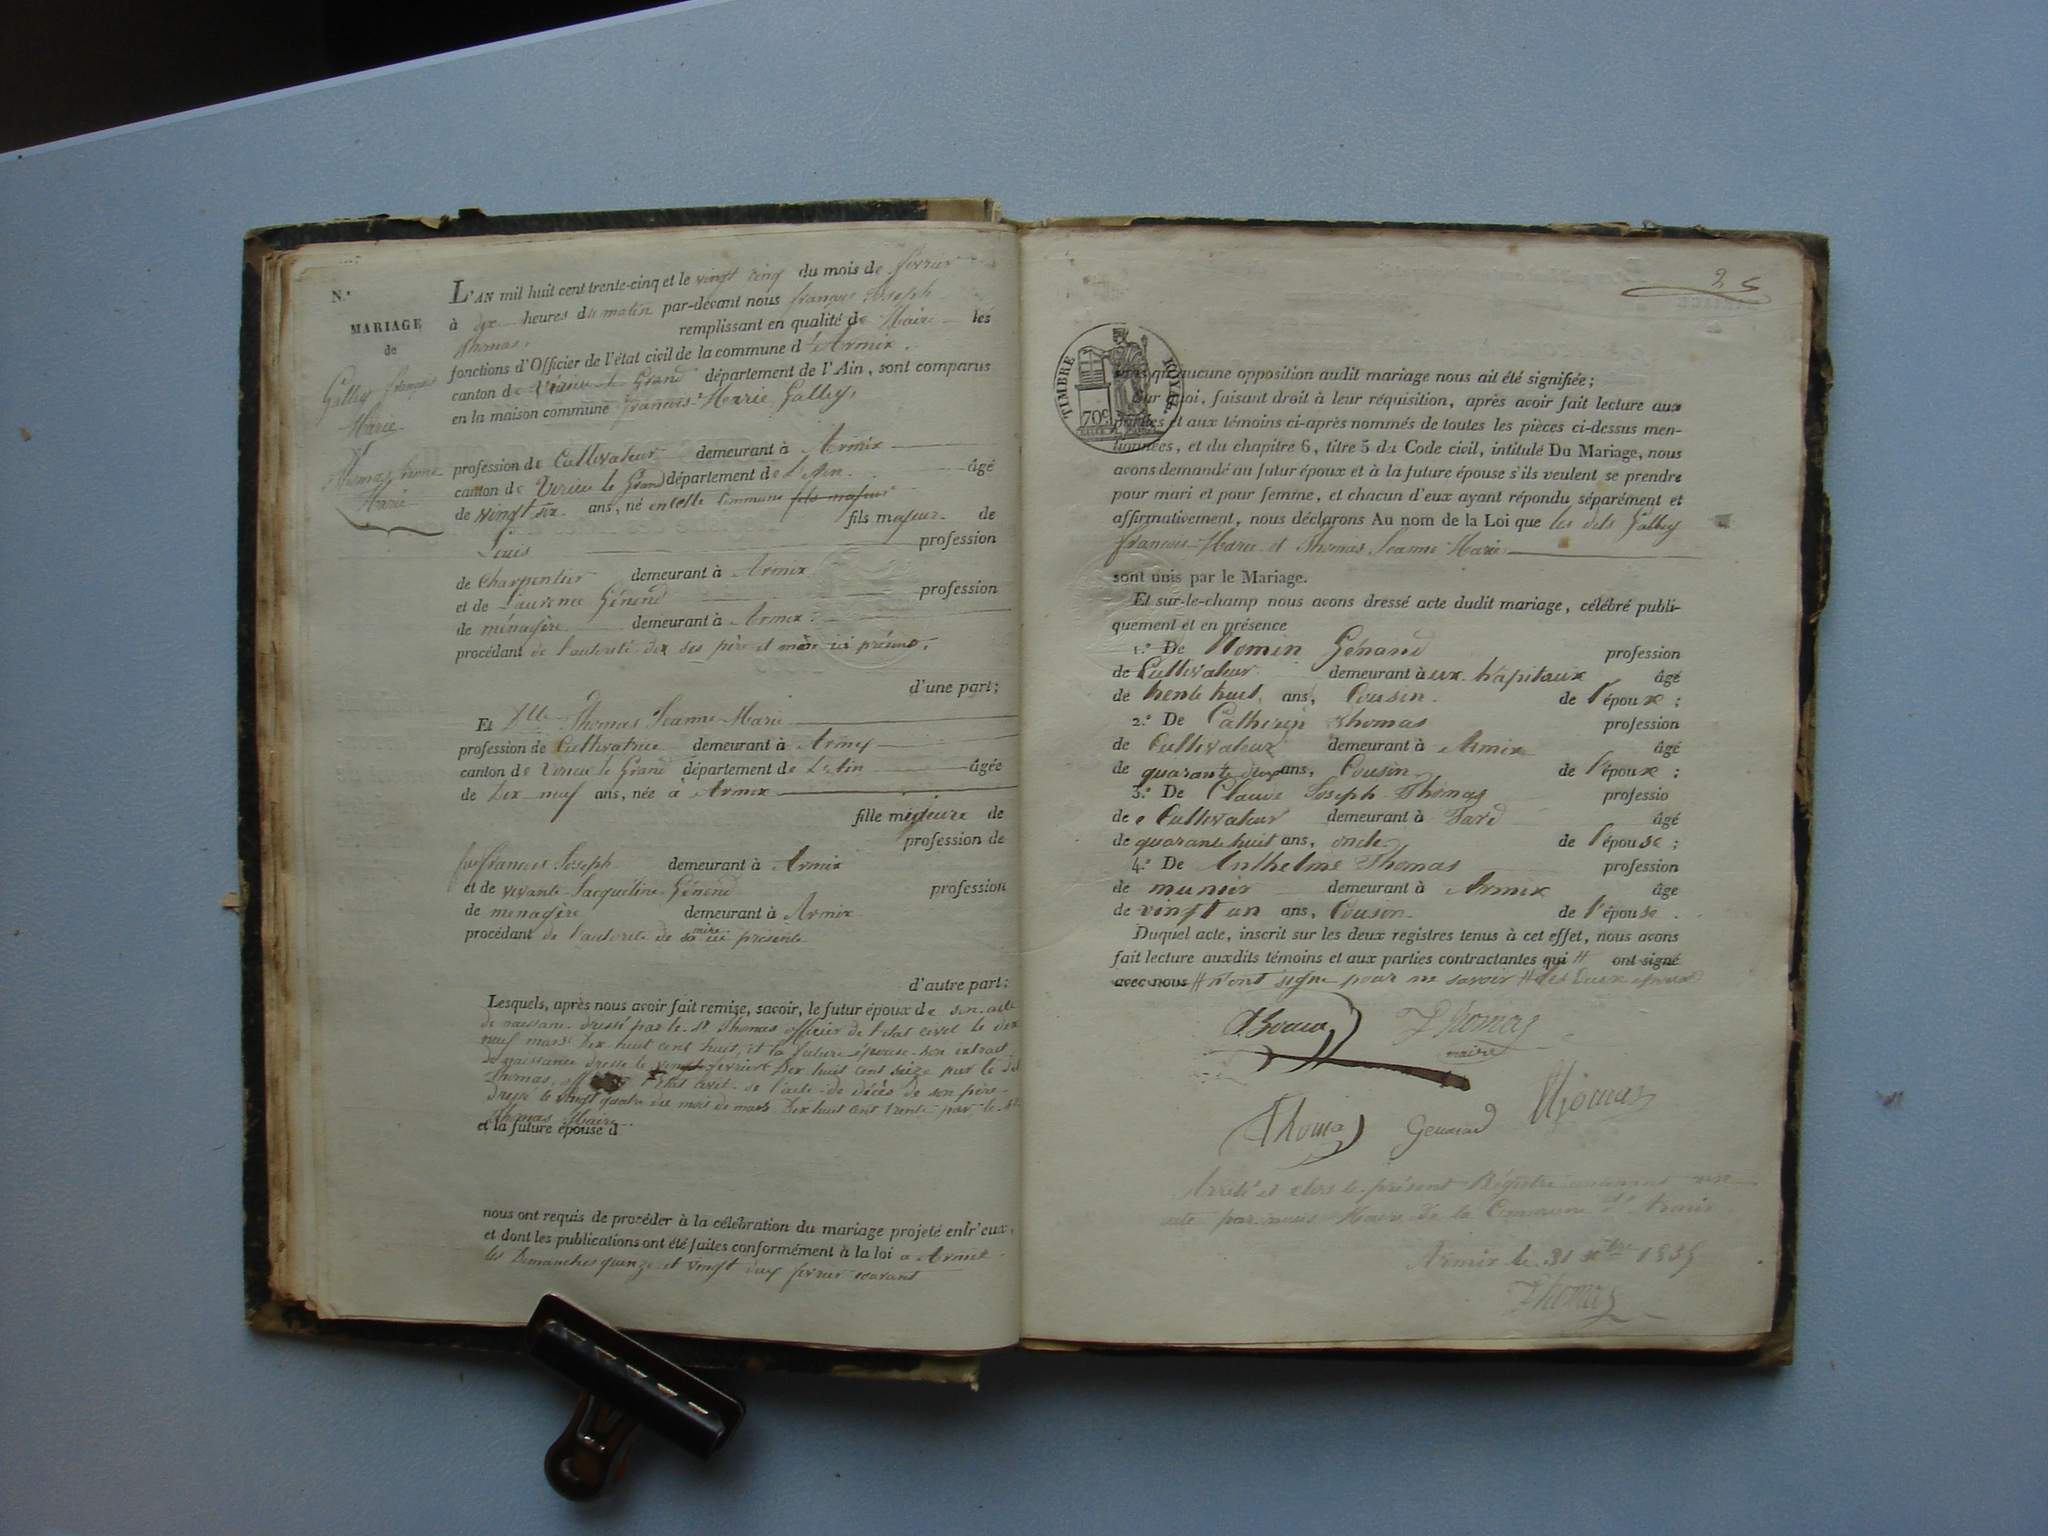 N.°
MARIAGE
de
Galley François
Marie
et
Thomas Jeanne
Marie
L'AN mil huit cent trente-cinq et le vingt cinq du mois de février
à dix heures du matin par-devant nous françois Joseph
Thomas, remplissant en qualité de Maire les
fonctions d'Officier de l'état civil de la commune d'Armix.
canton de Virieu le Grand département de l'Ain, sont comparus
en la maison commune françois-Marie Galley,
profession de Cultivateur demeurant à Armix
canton de Virieu le Grand département de L'Ain. âgé
de vingt six ans, né en cette commune fils majeur
fils majeur de
Louis profession
de Charpentier demeurant à Armix
et de Laurence Génend profession
de ménagère demeurant à Armix.
procédant de l'autorité de ses père et mère ici présens,
d'une part;
Et Dlle Thomas Jeanne Marie
profession de Cultivatrice demeurant à Armix
canton de Virieu le Grand département de L'Ain âgée
de Dix neuf ans, née à Armix
fille mineure de
profession de
feu françois Joseph demeurant à Armix
et de vivante Jacqueline Génend profession
de menagère demeurant à Armix
procédant de l'autorité de sa mère ici présente
d'autre part;
Lesquels, après nous avoir fait remise, savoir, le futur époux de son acte
de naissance dressé par le Sr Thomas officier de l'état civil le dix
neuf mars Dix huit cent huit, et la future épouse son extrait
de naissance dresse le vingt fevrier Dix huit cent seize par le dit
Thomas, l'état civil. de l'acte de décès de son père
dressé le vingt quatre du mois de mars Dix huit cent trente par le Sr
Thomas Maire.
et la future épouse d
nous ont requis de procéder à la célébration du mariage projeté entr'eux,
et dont les publications ont été faites conformément à la loi a Armix
les Dimanches quinze et vingt deux février courant
25
TIMBRE ROYAL
70c.
sans qu'aucune opposition audit mariage nous ait été signifiée;
Sur quoi, faisant droit à leur réquisition, après avoir fait lecture aux
parties et aux témoins ci-après nommés de toutes les pièces ci-dessus men-
tionnées, et du chapitre 6, titre 5 du Code civil, intitulé Du Mariage, nous
avons demandé au futur époux et à la future épouse s'ils veulent se prendre
pour mari et pour femme, et chacun d'eux ayant répondu séparément et
affirmativement, nous déclarons Au nom de la Loi que les dits Galley
françois Marie et Thomas Jeanne Marie
sont unis par le Mariage.
Et sur-le-champ nous avons dressé acte dudit mariage, célébré publi-
quement et en présence
1.° De Génand profession
de Cultivateur demeurant aux hôpitaux âgé
de trente huit ans, Cousin. de l'époux;
2.° De Catherin Thomas profession
de Cultivateur demeurant à Armix âgé
de quarante deux ans, Cousin de l'époux;
3.° De Claude Joseph Thomas professio
de Cultivateur demeurant à âgé
de quarante huit ans, oncle de l'épouse;
4.° De Anthelme Thomas profession
de munier demeurant à Armix âge
de vingt un ans, Cousin de l'épouse.
Duquel acte, inscrit sur les deux registres tenus à cet effet, nous avons
fait lecture auxdits témoins et aux parties contractantes qui # ont signé
avec nous # n'ont signé pour ne savoir # les deux epoux
Thomas
maire
Thomas Genand Thomas
Arrêté et clos le présent Régistre contenant un
acte par nous Maire de la Commune d'Armix
Armix le 31 Xbre 1835
Thomas